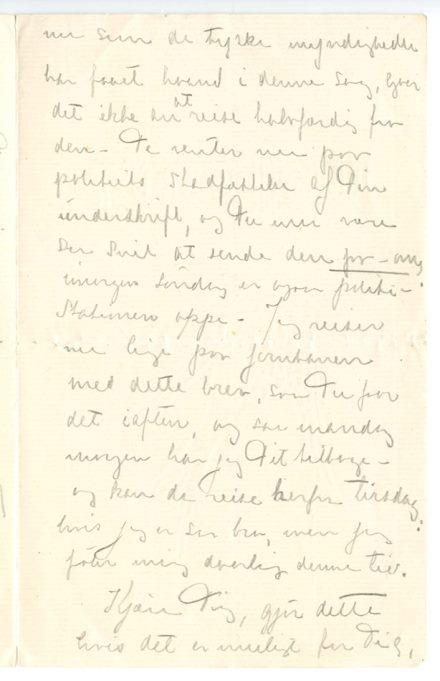 nu som de tyske myndigheder
har faaet haand i denne sag, gaar
det ikke an at reise halvfærdig fra
den – De venter nu paa
politiets Stadfæstelse af Din
underskrift, og Du maa være
saa snil at sende den
imorgen Søndag er ogsaa politi-
stationen oppe – Jeg reiser
nu lige paa jernbanen
med dette brev, saa Du faar
det iaften, og saa mandag
morgen har jeg Dit tilbage –
og kan da reise herfra tirsdag
hvis jeg er saa bra, men jeg
føler mig daarlig denne tid.
Kjære Dig, gjør dette
hvis det er muligt for Dig,